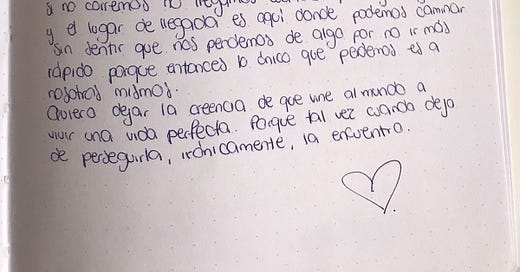 si no corremos no llegamos
y el lugar de llegada es aquí donde podemos caminar
sin sentir que nos perdemos de algo por no ir más
rápido porque entonces lo único que perdemos es a
nosotros mismos.
Quiero dejar la creencia de que vine al mundo a
vivir una vida perfecta. Porque tal vez cuando dejo
de perseguirla, irónicamente, la encuentro.